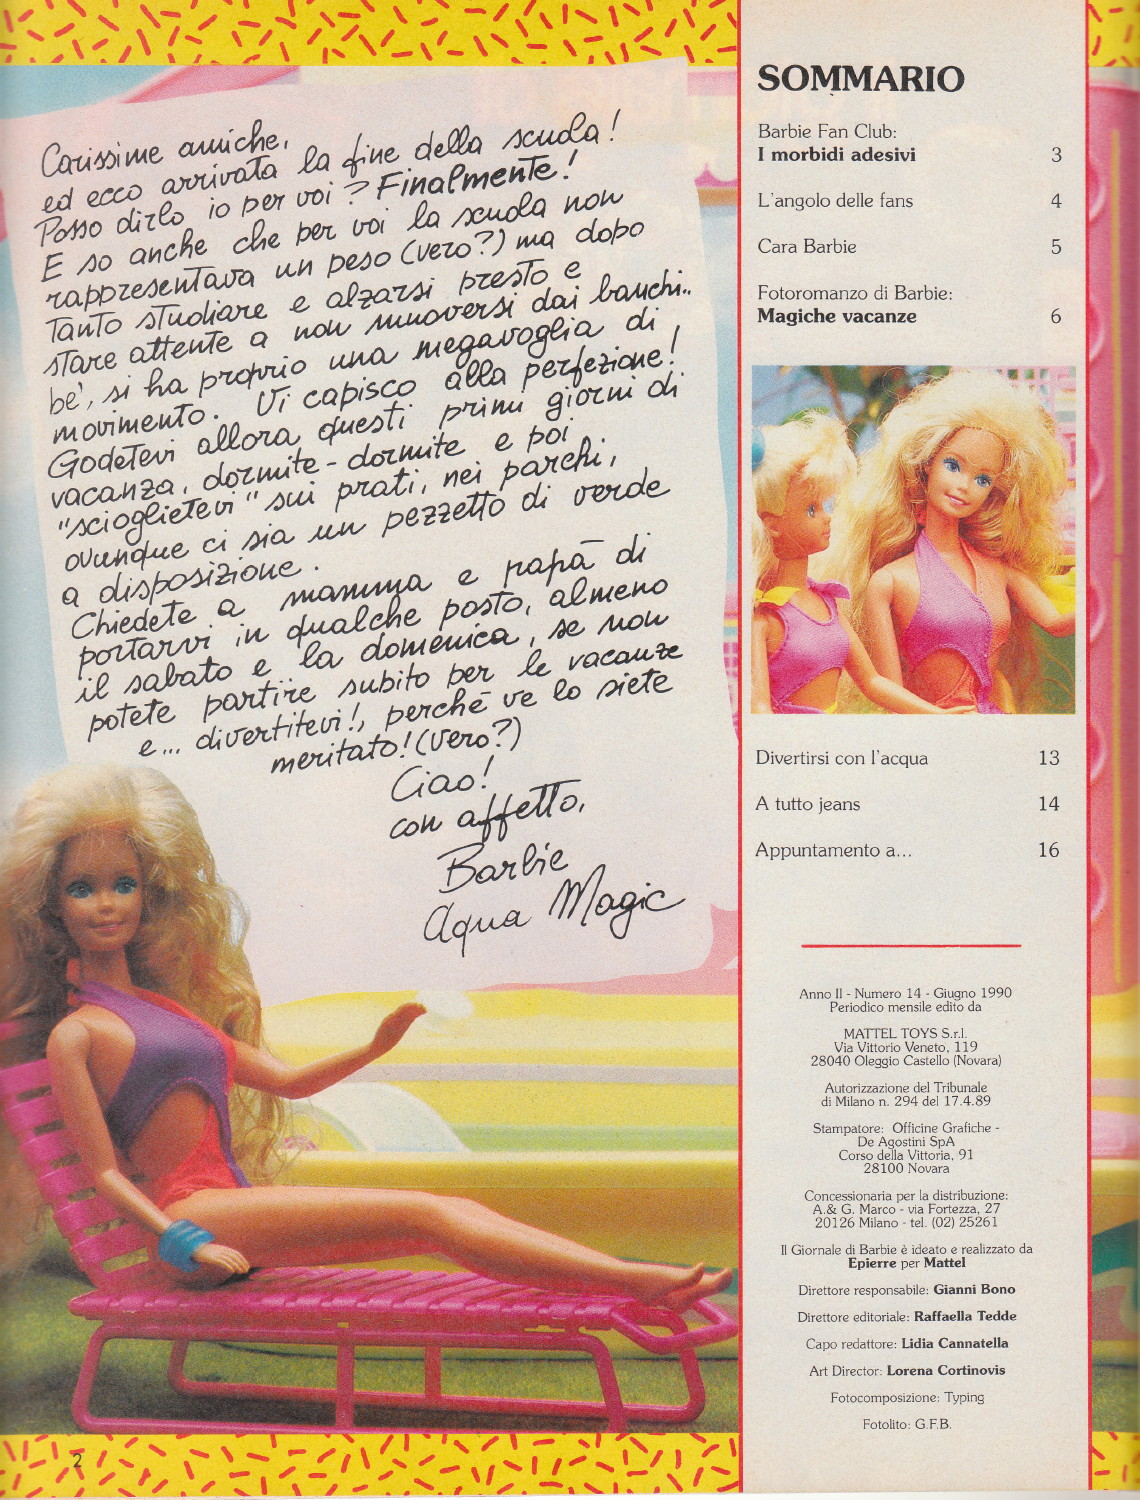 Carissime amiche,
ed ecco arrivata la fine della scuola!
Posso dirlo io per voi? Finalmente!
E so anche che per voi la scuola non
rappresentava un peso (vero?) ma dopo
tanto studiare e alzarsi presto e
stare attente a non muoversi dai banchi..
be', si ha proprio una megavoglia di
movimento. Vi capisco alla perfezione!
Godetevi allora questi primi giorni di
vacanza, dormite-dormite e poi
"scioglietevi" sui prati, nei parchi,
ovunque ci sia un pezzetto di verde
a disposizione.
Chiedete a mamma e papà di
portarvi in qualche posto, almeno
il sabato e la domenica, se non
potete partire subito per le vacanze
e... divertitevi!, perché ve lo siete
meritato! (vero?)
Ciao!
con affetto,
Barbie
Aqua Magic
2
SOMMARIO
Barbie Fan Club:
I morbidi adesivi 3
L'angolo delle fans 4
Cara Barbie 5
Fotoromanzo di Barbie:
Magiche vacanze 6
Divertirsi con l'acqua 13
A tutto jeans 14
Appuntamento a... 16
Anno II - Numero 14 - Giugno 1990
Periodico mensile edito da
MATTEL TOYS S.r.l.
Via Vittorio Veneto, 119
28040 Oleggio Castello (Novara)
Autorizzazione del Tribunale
di Milano n. 294 del 17.4.89
Stampatore: Officine Grafiche -
De Agostini SpA
Corso della Vittoria, 91
28100 Novara
Concessionaria per la distribuzione:
A.& G. Marco - via Fortezza, 27
20126 Milano - tel. (02) 25261
Il Giornale di Barbie è ideato e realizzato da
Epierre per Mattel
Direttore responsabile: Gianni Bono
Direttore editoriale: Raffaella Tedde
Capo redattore: Lidia Cannatella
Art Director: Lorena Cortinovis
Fotocomposizione: Typing
Fotolito: G.F.B.